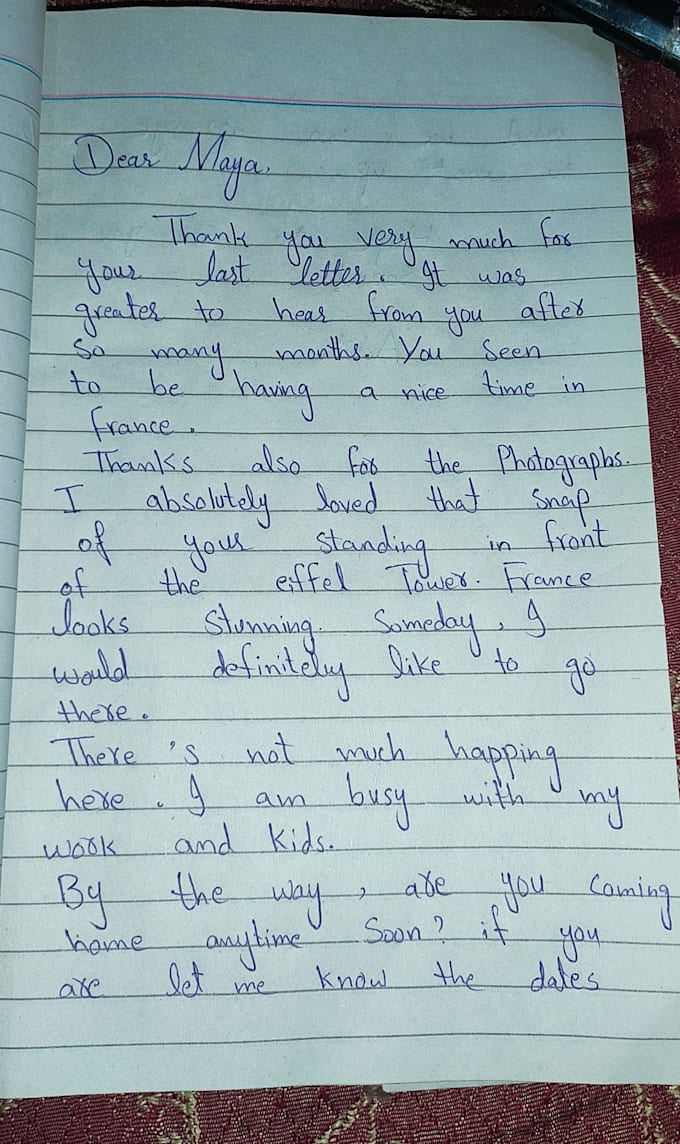 Dear Maya,
Thank you very much for
your last letter. It was
greater to hear from you after
so many months. You seen
to be having a nice time in
france.
Thanks also for the Photographs.
I absolutely loved that snap
of your standing in front
of the eiffel Tower. France
looks stunning. Someday, I
would definitely like to go
there.
There 's not much happing
here. I am busy with my
work and kids.
By the way, are you coming
home anytime soon? if you
are let me know the dates